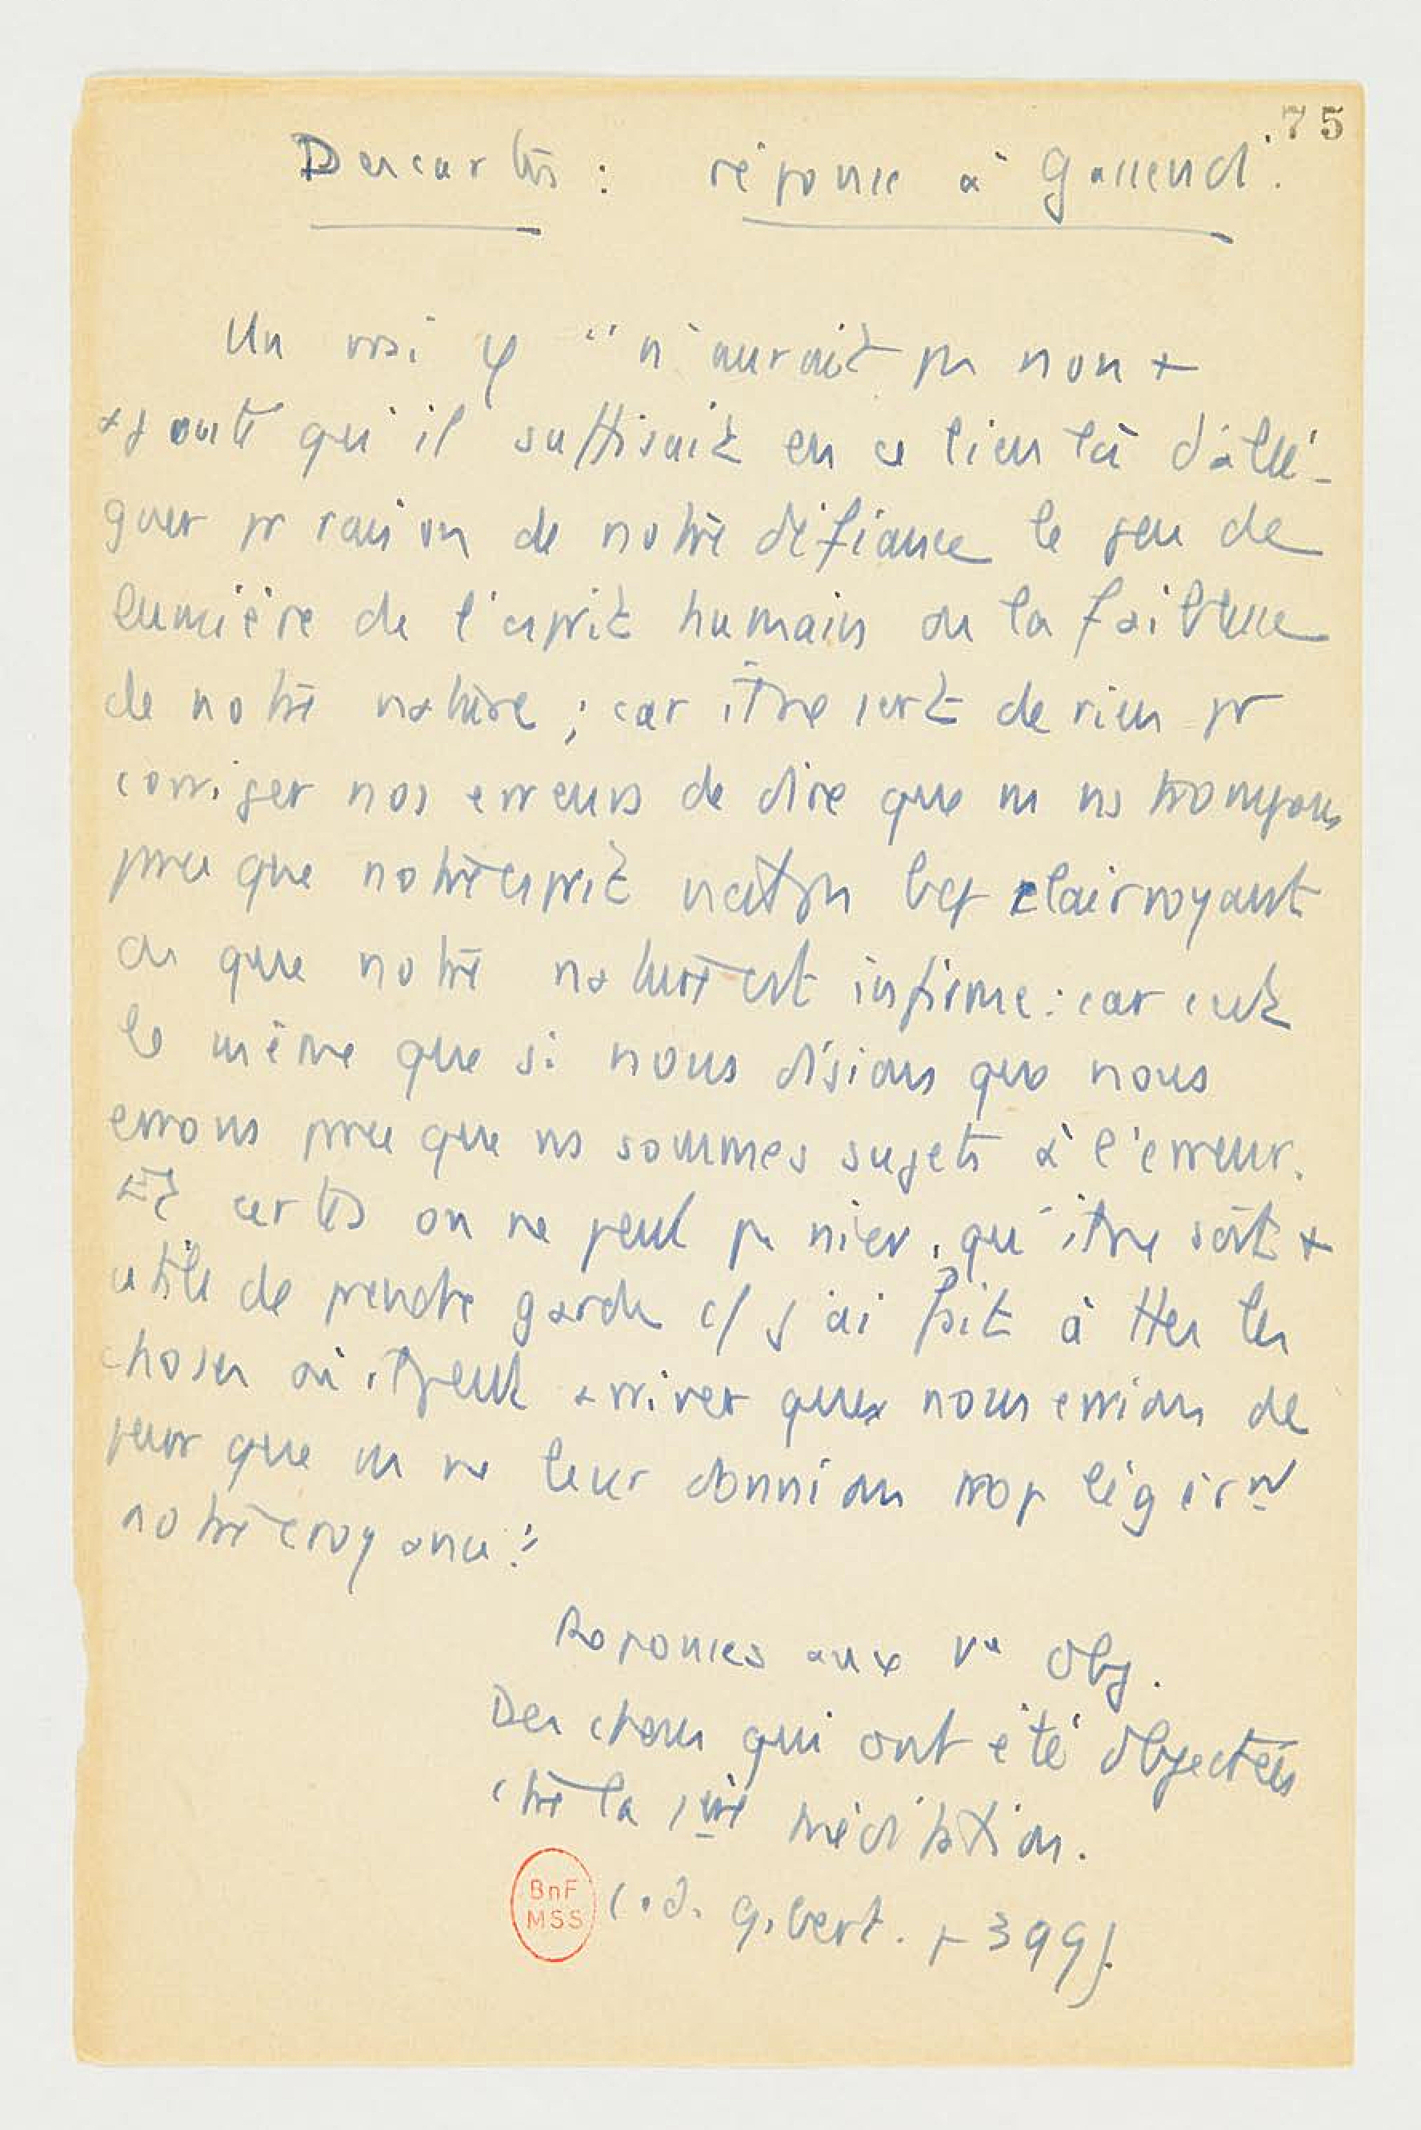 75
Descartes : réponse à Gassendi.
Un vrai φ "n'aurait pas non +
ajouté qu'il suffisait en ce lieu là d'allé-
guer pr raison de notre défiance le peu de
lumière de l'esprit humain ou la faiblesse
de notre nature ; car il ne sert de rien pr
corriger nos erreurs de dire que ns ns trompons
parce que notre esprit n'est pas bcp clairvoyant
ou que notre nature est infirme : car c'est
le même que si nous disions que nous
errons parce que ns sommes sujets à l'erreur.
Et certes on ne peut pas nier qu'il ne soit +
utile de prendre garde c/ j'ai fait à ttes les
choses où il peut arriver que nous errions de
peur que ns ne leur donnions trop légèrt
notre croyance."
Réponses aux Ves Obj.
Des choses qui ont été objectées
ctre la 1ère méditation.
(éd. Gibert. p 399).
BnF
MSS